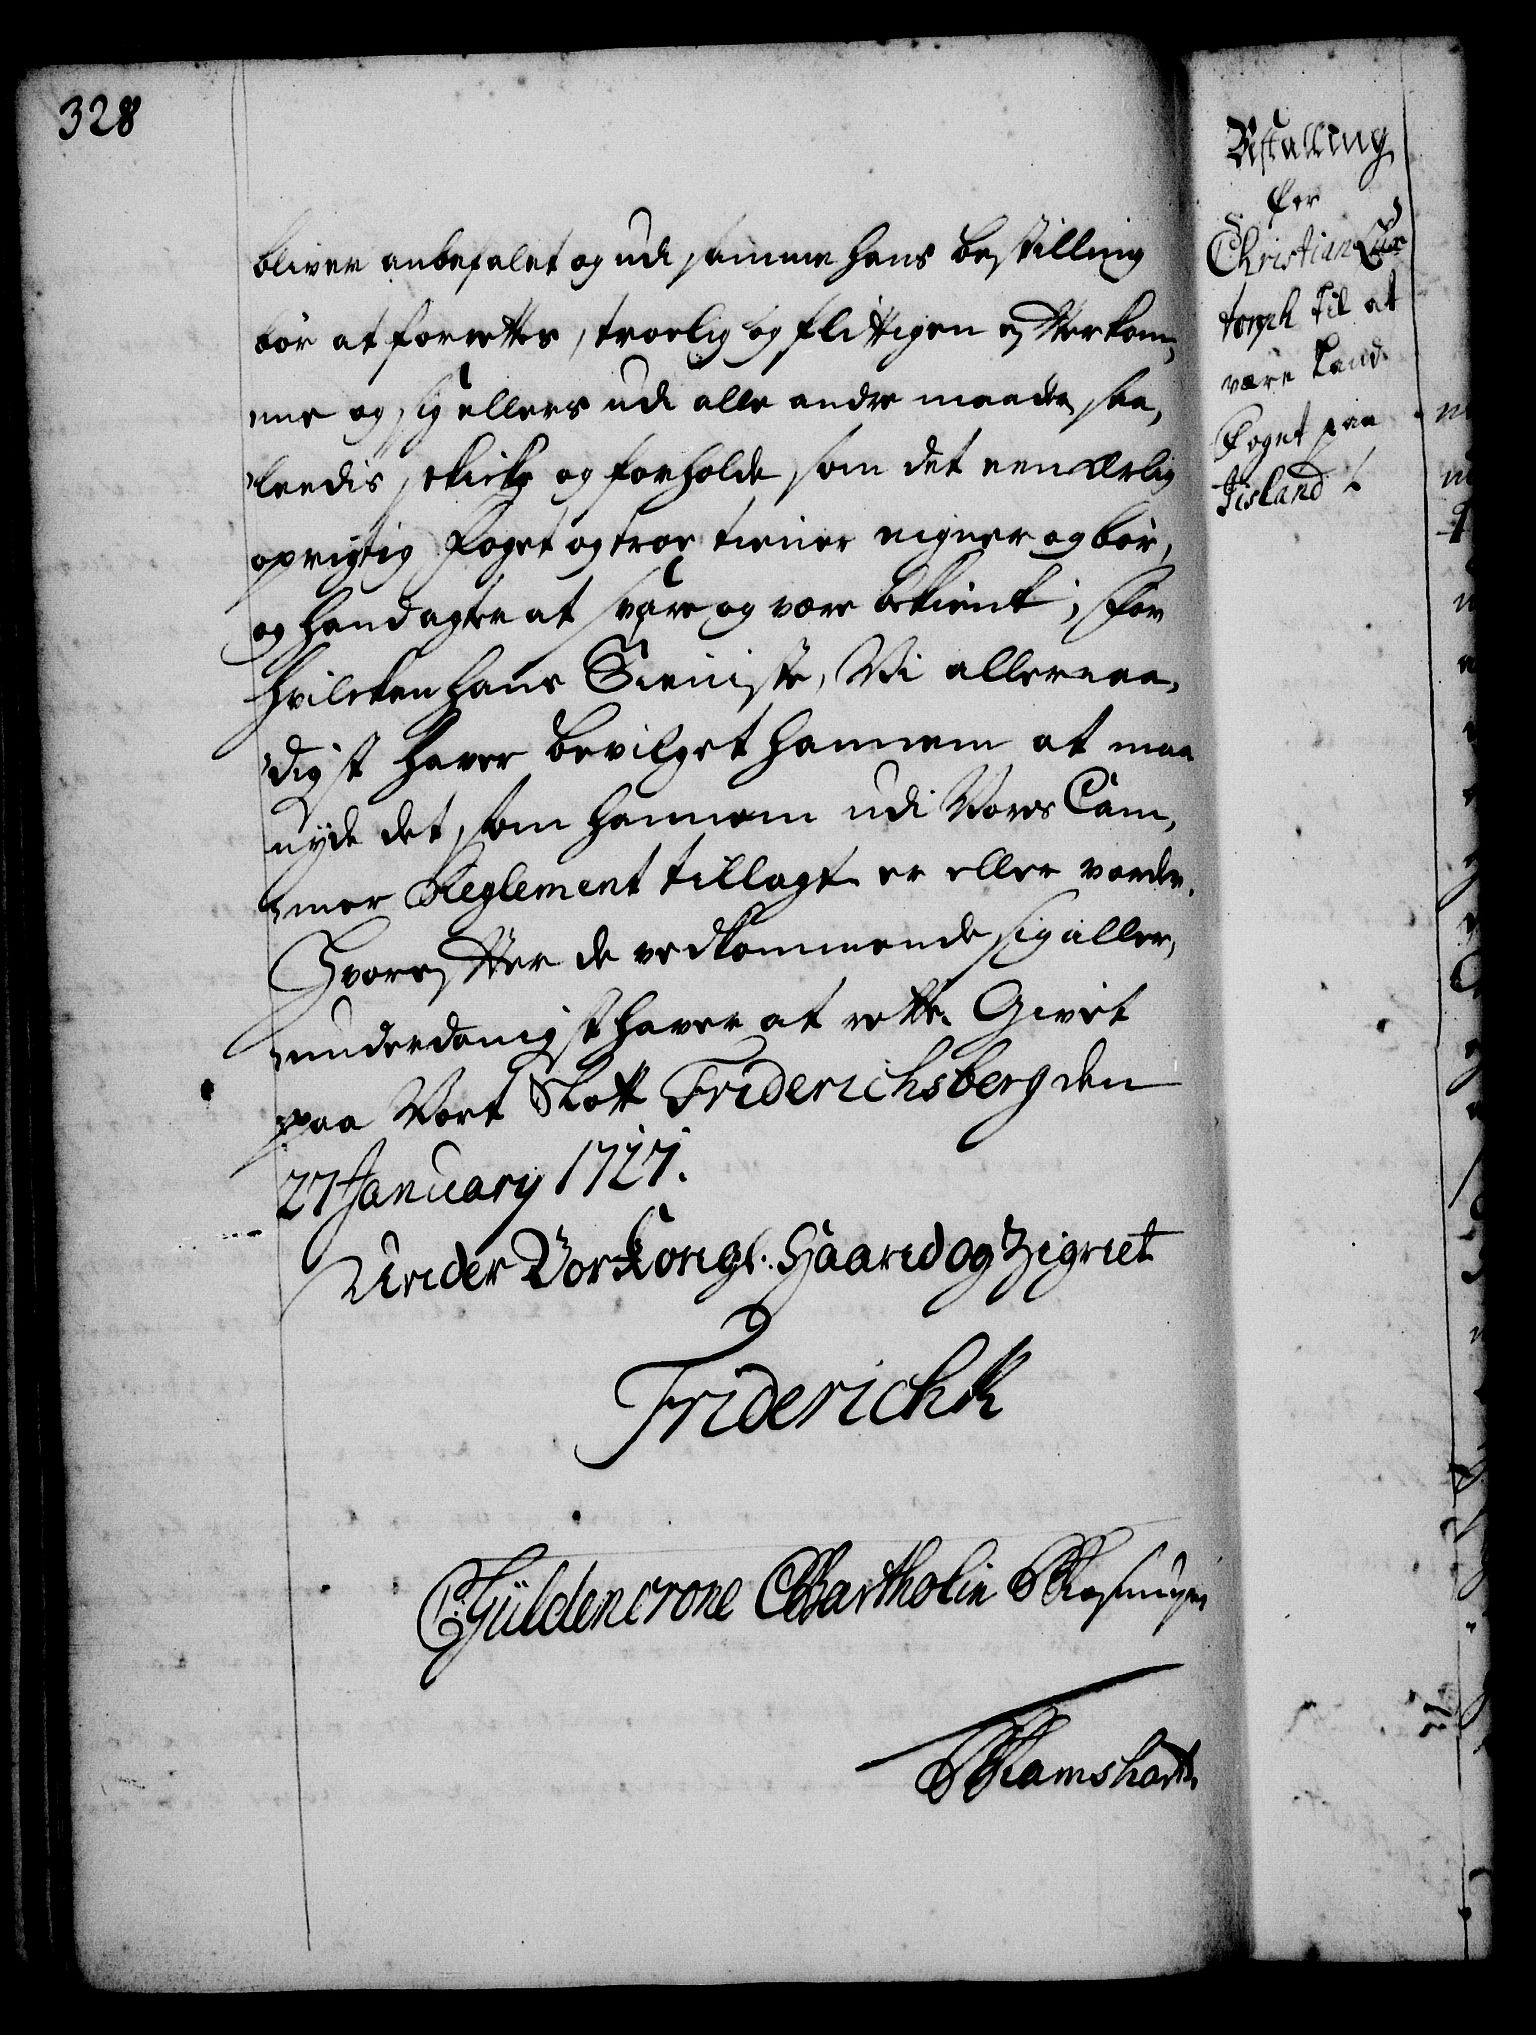 328
bliver anbefalet og udi samme hans bestilling
bör at forrettes, troelig og flittigen efterkom,
me og sig ellers udi alle andre maader saa,
leedis skicke og forholde som det een ærlig
oprigtig Foget og troe tiener eigner og bör,
og hand agter at svare og være bekient, for
hvilcken hans Tieniste, Vi allernaa,
digst haver bevilget hannem at maa
nyde det som hannem udi Vores Cam,
mer Reglement tillagt er eller vorder.
Hvorefter de vedkommende sig aller,
underdanigst haver at rette. Givet
paa Vort Slott Friderichsberg den
27 January 1727.
Under Vor Kongl. Haand og Zignet
Friderich R
C Güldencrone C Bartholin
B Ramshart
Bestalling
for
Christian Lux
torph til at
være Land
Foget paa
Jisland